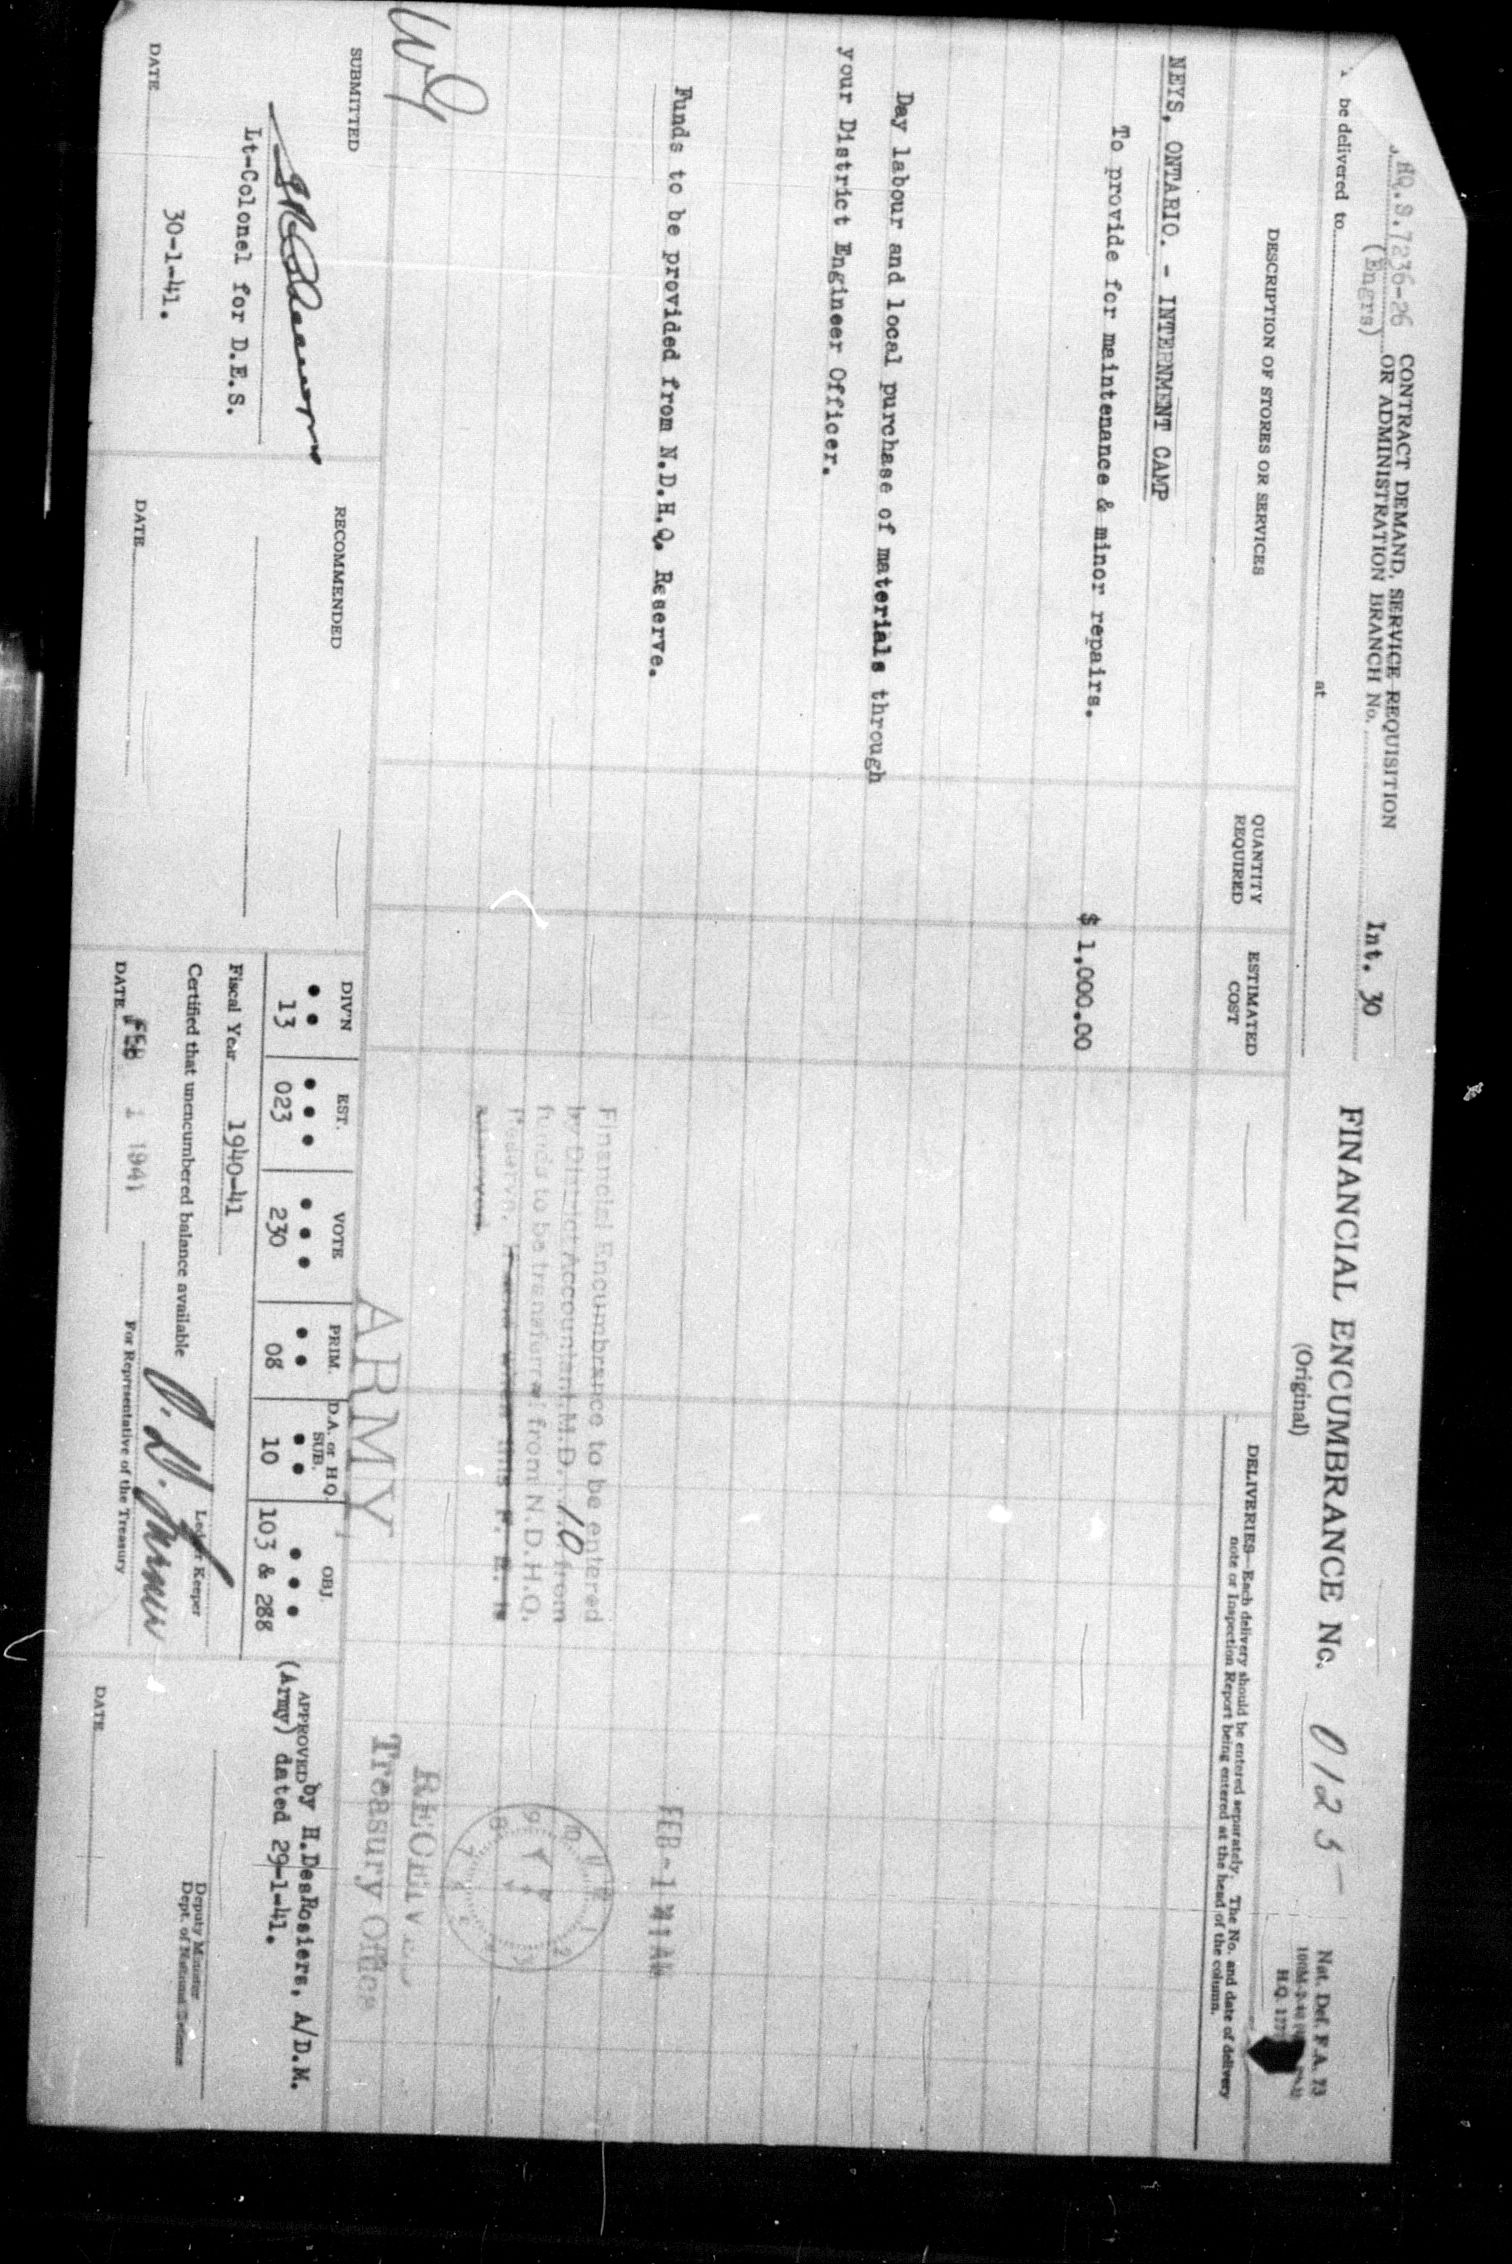 HQ.S.7236-26
(Engrs)
CONTRACT DEMAND, SERVICE REQUISITION
OR ADMINISTRATION BRANCH No. Int. 30
FINANCIAL ENCUMBRANCE No. 0125
(Original)
Nat. Def. F.A. 73
H.Q.
be delivered to
at
DELIVERIES—Each delivery should be entered separately. The No. and date of delivery
note or Inspection Report being entered at the head of the column.
DESCRIPTION OF STORES OR SERVICES
QUANTITY
REQUIRED
ESTIMATED
COST
NEYS, ONTARIO. - INTERNMENT CAMP
To provide for maintenance & minor repairs.
$ 1,000.00
Day labour and local purchase of materials through
your District Engineer Officer.
Funds to be provided from N.D.H.Q. Reserve.
Financial Encumbrance to be entered
by District Accountant M.D. 10 from
funds to be transferred from N.D.H.Q.
Reserve. If and when this F. E. is
approved.
FEB -1 41 AM
10 11 12 1 2 3 4 5 6 7 8 9
RECEIVED
Treasury Office
ARMY
SUBMITTED
Lt-Colonel for D.E.S.
DATE 30-1-41.
RECOMMENDED
DATE
DIV'N EST. VOTE PRIM. D.A. or HQ. SUB. OBJ.
13 023 230 08 10 103 & 288
Fiscal Year 1940-41
Certified that unencumbered balance available
Ledger Keeper
DATE FEB 1 1941
For Representative of the Treasury
APPROVED by H.DesRosiers, A/D.M.
(Army) dated 29-1-41.
Deputy Minister
Dept. of National Defence
DATE